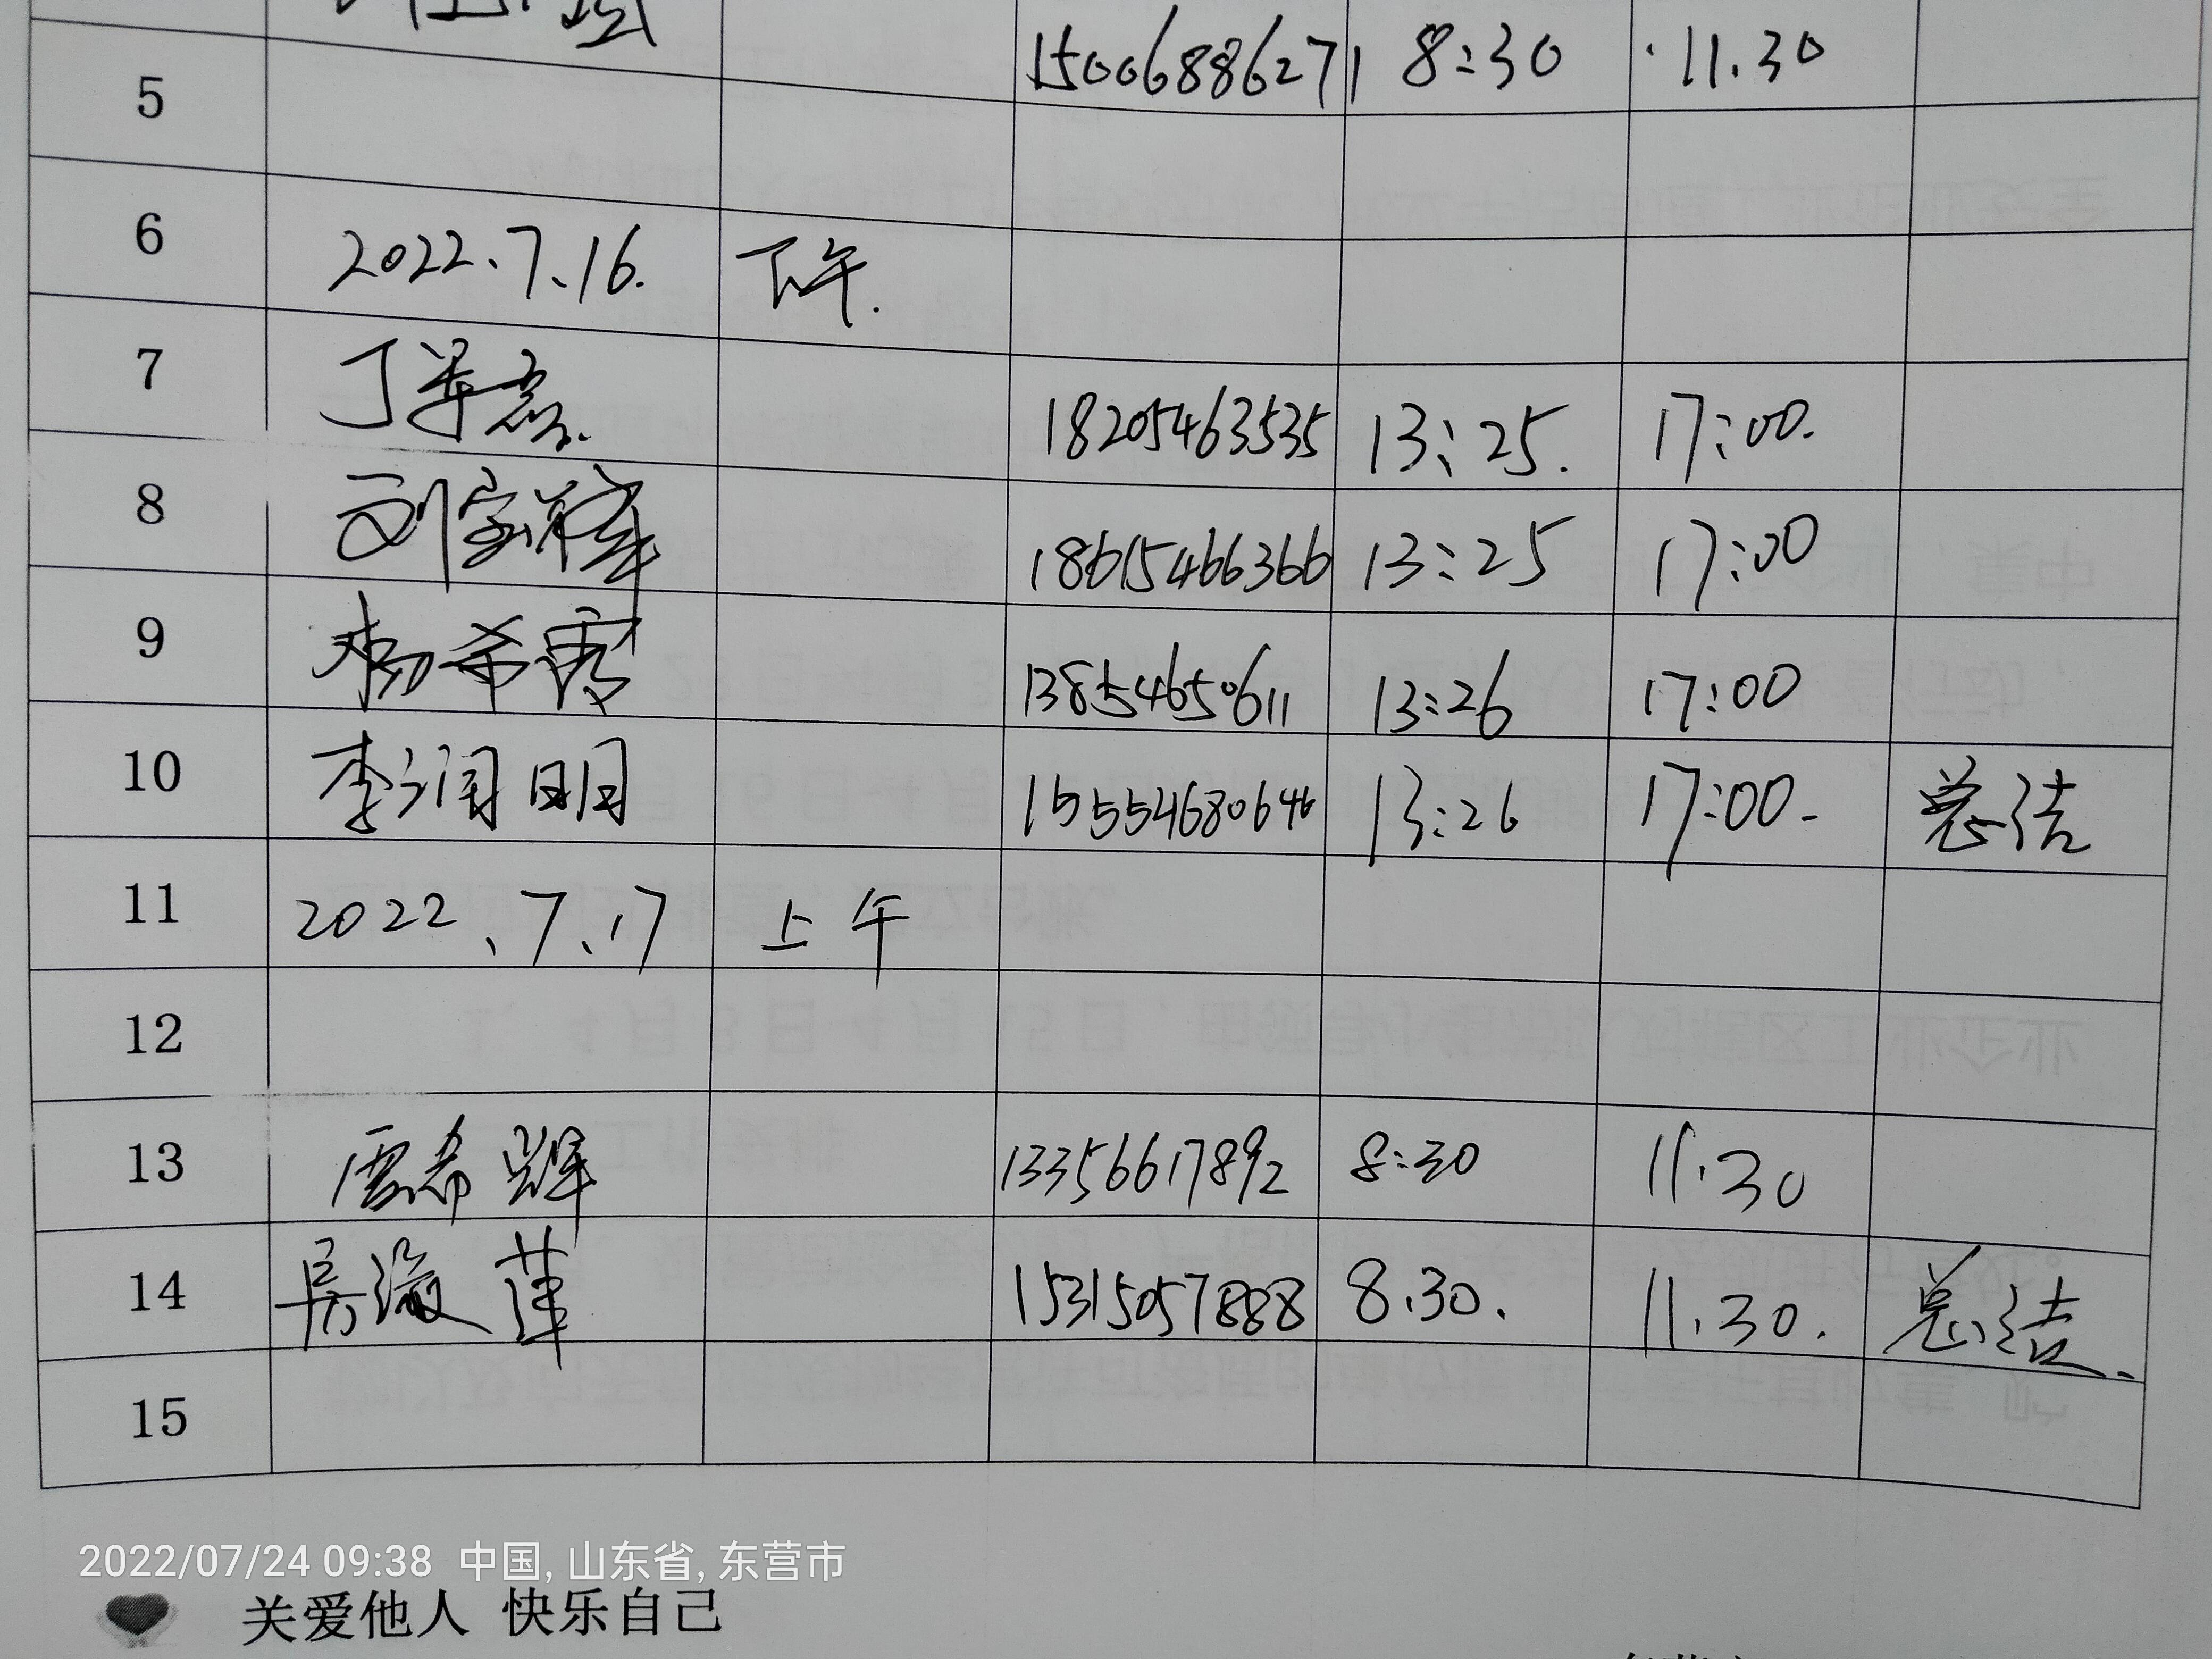 15006886271 8:30 11.30
5
6 2022.7.16. 下午.
7 丁 18205463535 13:25. 17:00.
8 刘 18615466366 13:25 17:00
9 杨希霞 13854650611 13:26 17:00
10 李润明 15554680646 13:26 17:00. 总结
11 2022、7、17 上午
12
13 雷希辉 13356617892 8:30 11.30
14 吴海莲 15315057888 8.30. 11.30. 总结.
15
2022/07/24 09:38 中国, 山东省, 东营市
关爱他人 快乐自己